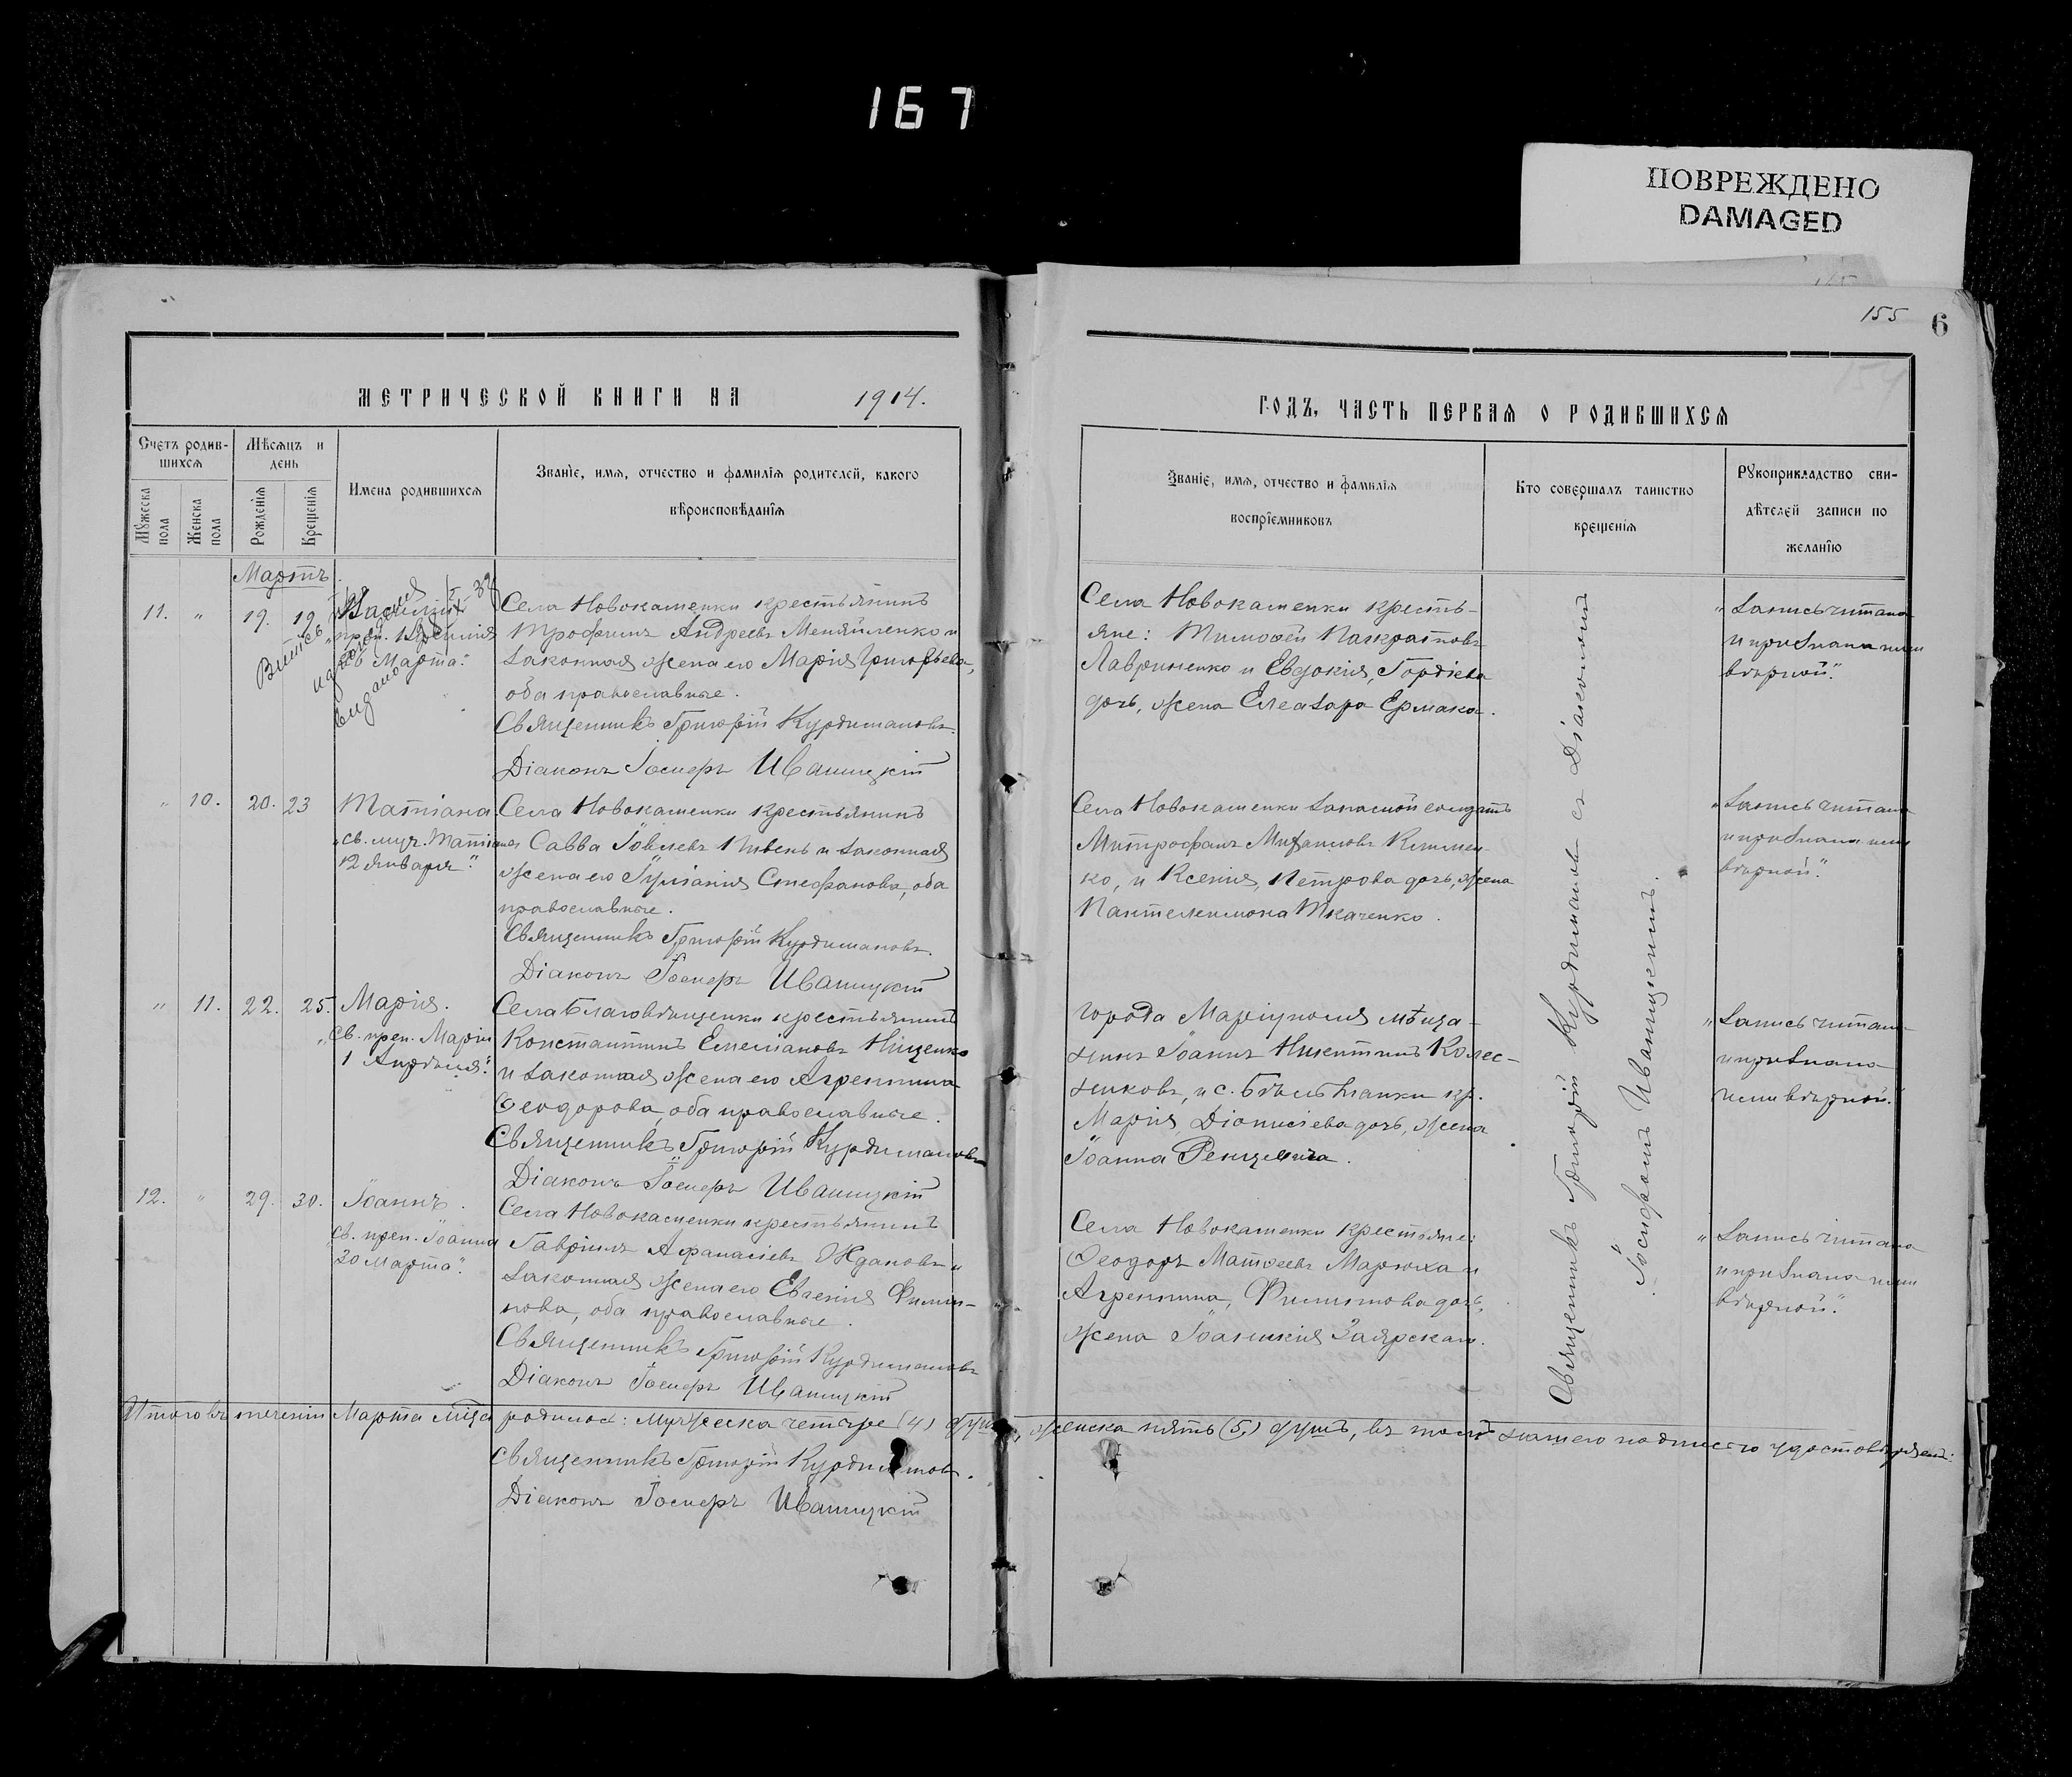 167
ПОВРЕЖДЕНО
DAMAGED
155
6
МЕТРИЧЕСКОЙ КНИГИ НА 1914.
Счетъ родив-
шихся
Мѣсяцъ и
день
Мужеска
пола
Женска
пола
Рожденія
Крещенія
Имена родившихся
Званіе, имя, отчество и фамилія родителей, какого
вѣроисповѣданія
Мартъ.
11. " 19. 19.
Василій
26 Марта."
Села Новокаменки крестьянинъ
Трофимъ Андреевъ и
законная жена его Марія Григорьева,
оба православные.
Священникъ Григорій Курдимановъ.
Діаконъ Іосифъ Иваницкій
" 10. 20. 23
Татіана
"св. муч. Татіаны
12 Января."
Села Новокаменки крестьянинъ
Савва Іовлевъ Пивень и законная
жена его Іуліанія Стефанова, оба
православные.
Священникъ Григорій Курдимановъ.
Діаконъ Іосифъ Иваницкій
" 11. 22. 25.
Марія.
"Св. преп. Маріи
1 Апрѣля."
Села Благовѣщенки крестьянинъ
Константинъ Емеліановъ Нищенко
и законная жена его Агрепина
Ѳеодорова, оба православные.
Священникъ Григорій Курдимановъ
Діаконъ Іосифъ Иваницкій
12. " 29. 30.
Іоаннъ.
"Св. преп. Іоанна
30 Марта."
Села Новокаменки крестьянинъ
Гавріилъ Афанасіевъ Ждановъ и
законная жена его Евгенія Филип-
пова, оба православные.
Священникъ Григорій Курдимановъ
Діаконъ Іосифъ Иваницкій
ГОДЪ, ЧАСТЬ ПЕРВАЯ О РОДИВШИХСЯ
Званіе, имя, отчество и фамилія
воспріемниковъ
Кто совершалъ таинство
крещенія
Рукоприкладство сви-
дѣтелей записи по
желанію
Села Новокаменки кресть-
яне: Тимоѳей Панкратовъ
Лавриненко и Евдокія, Гордіева
дочь, жена Елеазара Ермака.
"Запись читана
и признана нами
вѣрной."
Села Новокаменки запасной солдатъ
Митрофанъ Михаиловъ Климен-
ко, и Ксенія, Петрова дочь, жена
Пантелеимона Ткаченко.
"Запись читана
и признана нами
вѣрной."
Города Маріуполя мѣща-
нинъ Іоаннъ Никентинъ Колес-
никовъ, и с. кр.
Марія, Діонисіева дочь, жена
Іоанна
"Запись читана
и признана
нами вѣрной."
Села Новокаменки крестьяне:
Ѳеодоръ Матѳеевъ Марюха и
Агрепина, Филиппова дочь,
жена Іоанникія Заярскаго.
"Запись читана
и признана нами
вѣрной."
Священникъ Григорій Курдимановъ съ Діакономъ
Іосифомъ Иваницкимъ.
Итого въ теченіи Марта м-ца родилось: мужеска четыре (4) душъ, женска пять (5,) душъ, въ томъ нашею подписью удостовѣряемъ:
Священникъ Григорій Курдимановъ.
Діаконъ Іосифъ Иваницкій